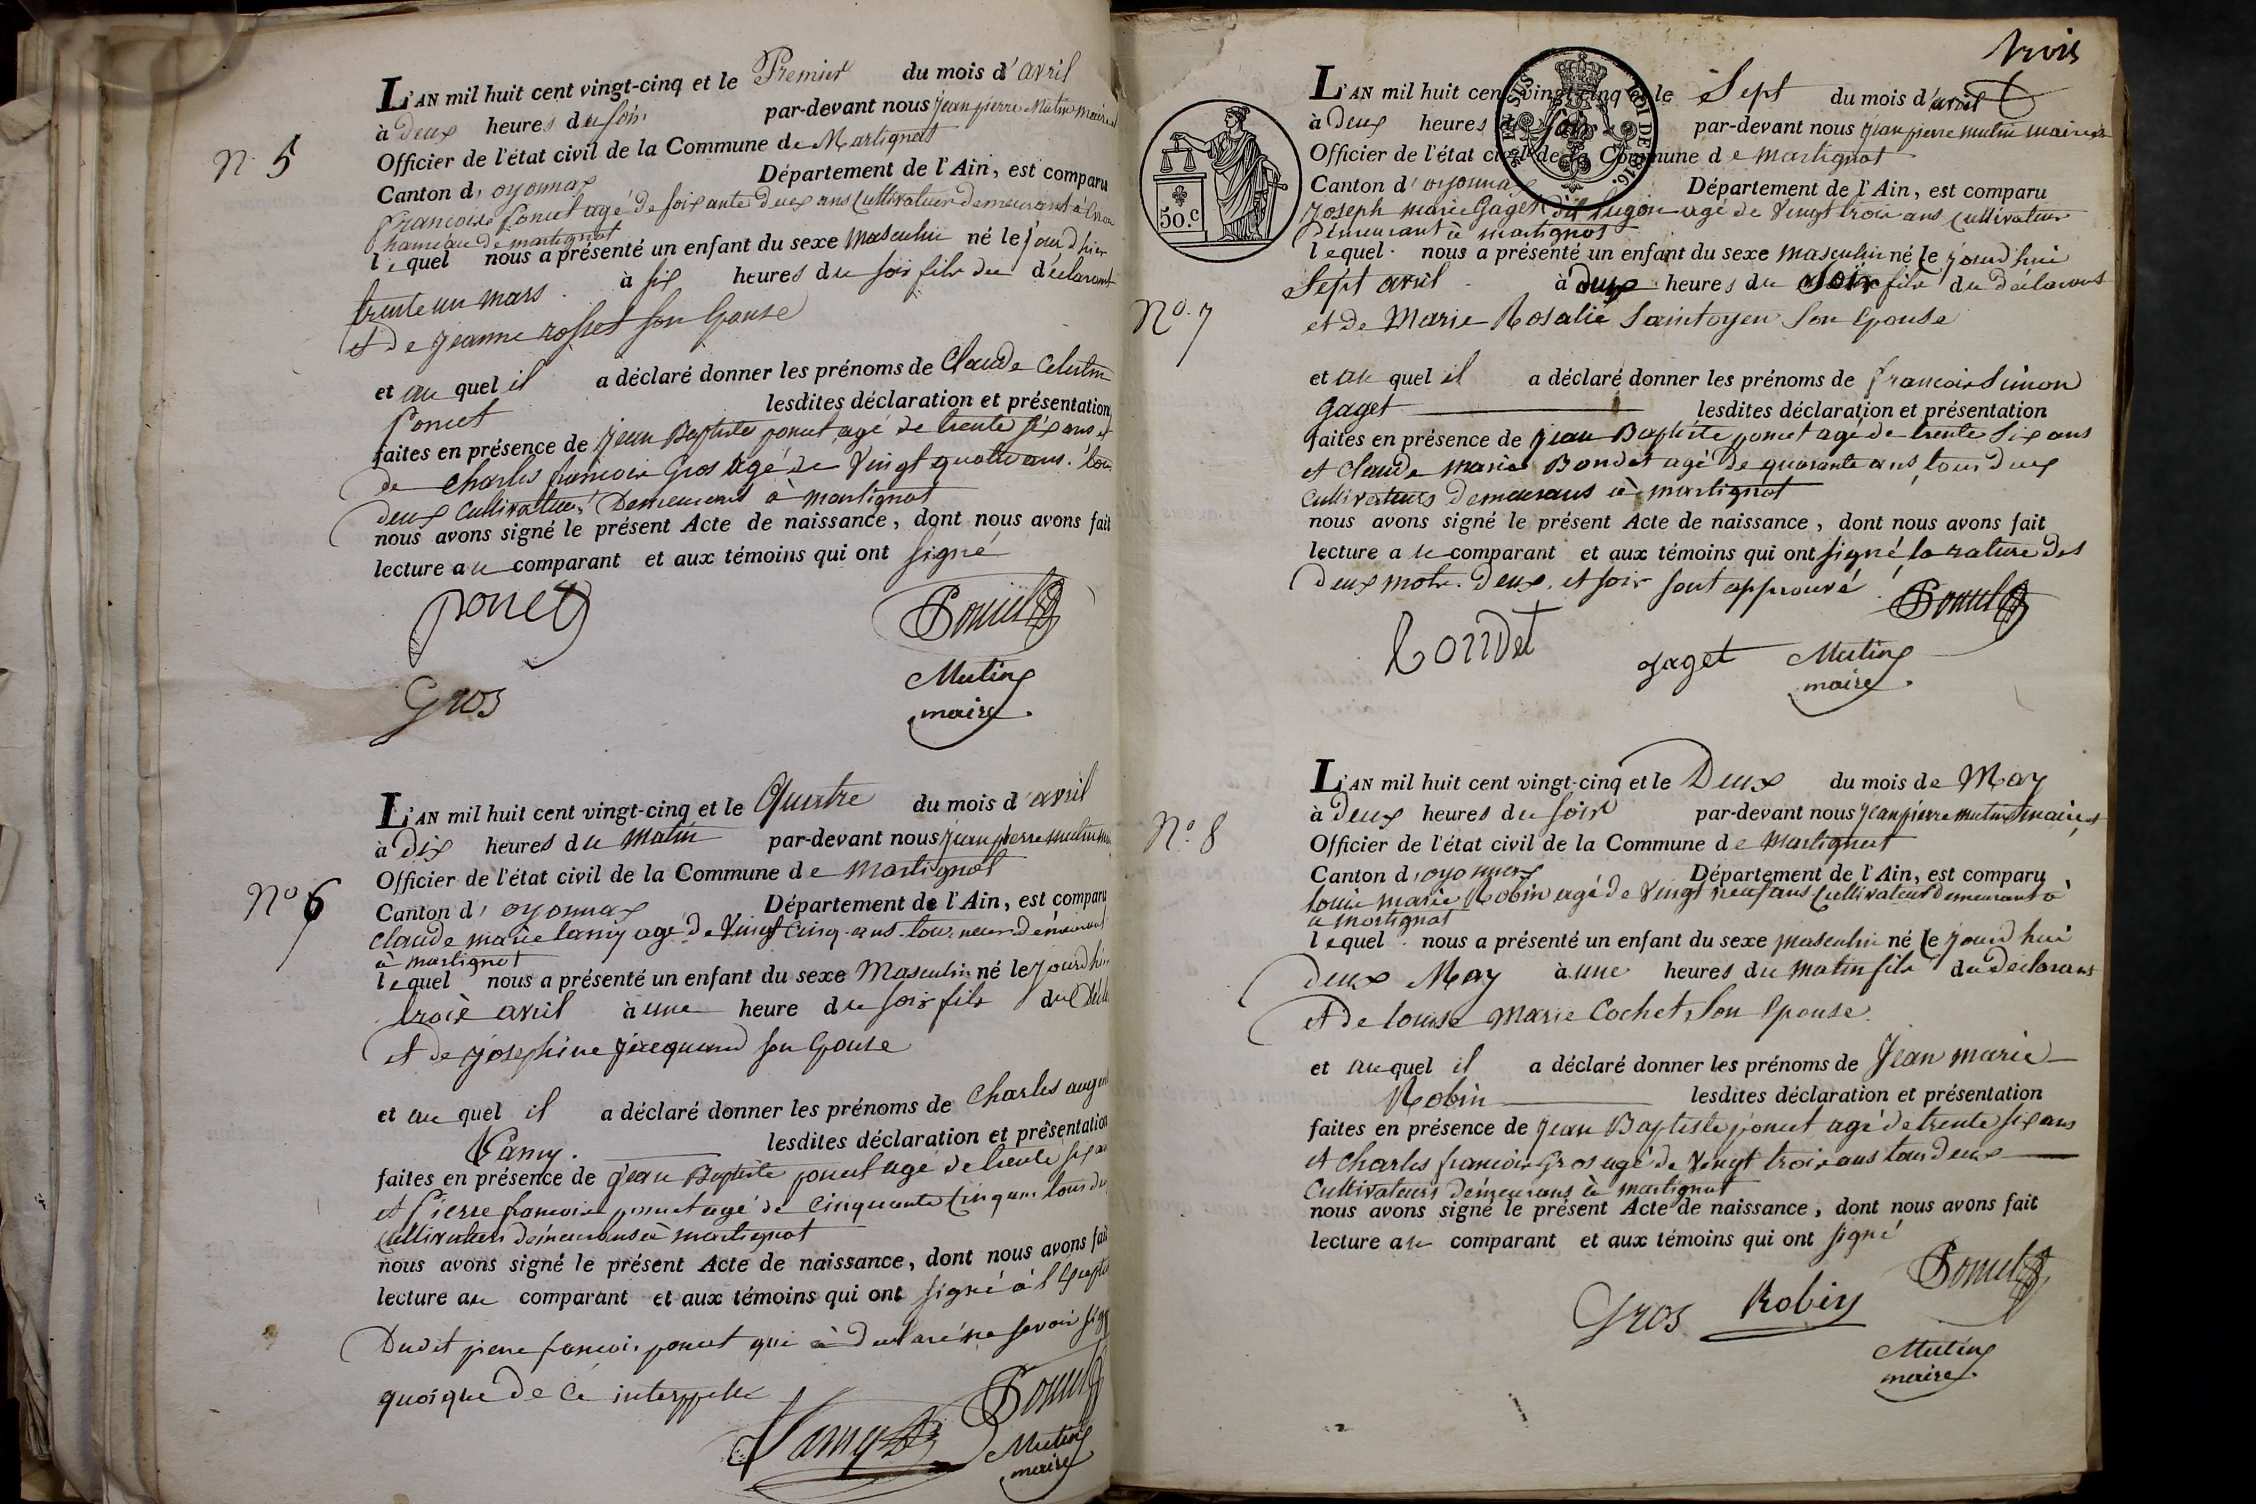 N. 5
L'AN mil huit cent vingt-cinq et le Premier du mois d'avril
à deux heures du soir par-devant nous jean pierre Mutin maire
Officier de l'état civil de la Commune de Martignat
Canton d'oyonnax Département de l'Ain, est comparu
francois poncet agé de soixante deux ans cultivateur demeurant à
hameau de martignat
lequel nous a présenté un enfant du sexe masculin né le jour d'hier
trente un mars à six heures du soir fils du déclarant
et de jeanne rosset son Epouse
et au quel il a déclaré donner les prénoms de Claude Celestin
Poncet lesdites déclaration et présentation
faites en présence de jean Baptiste poncet agé de trente six ans et
de Charles francois Gros agé de vingt quatre ans. tous
deux cultivateurs Demeurant à martignat
nous avons signé le présent Acte de naissance, dont nous avons fait
lecture au comparant et aux témoins qui ont signé
poncet Poncet
Gros Mutin
maire
No 6
L'AN mil huit cent vingt-cinq et le Quatre du mois d'avril
à dix heures du matin par-devant nous jean pierre mutin
Officier de l'état civil de la Commune de martignat
Canton d'oyonnax Département de l'Ain, est comparu
claude marie lamy agé de vingt cinq ans tourneur demeurant
à martignat
lequel nous a présenté un enfant du sexe Masculin né le jour d'hier
trois avril à une heure du soir fils du
et de josephine jacquand son Epouse
et au quel il a déclaré donner les prénoms de Charles
Lamy. lesdites déclaration et présentation
faites en présence de jean Baptiste poncet agé de trente six ans
et Pierre francois poncet agé de cinquante cinq ans tous deux
cultivateurs demeurans à martignat
nous avons signé le présent Acte de naissance, dont nous avons fait
lecture au comparant et aux témoins qui ont signé à l'
Dudit pierre francois poncet qui à declaré ne savoir
quoique de ce interppellé
Lamy Poncet
Mutin
maire
trois
50.c
No. 7
L'AN mil huit cent vingt-cinq et le Sept du mois d'avril
à deux heures du soir par-devant nous jean pierre mutin maire
Officier de l'état civil de la Commune de martignat
Canton d'oyonnax Département de l'Ain, est comparu
joseph marie Gaget dit hugon agé de vingt trois ans cultivateur
demeurant à martignat
lequel nous a présenté un enfant du sexe masculin né le jourd'hui
Sept avril à deux heures du soir fils du déclarant
et de Marie Rosalie Saintoyen son Epouse
et au quel il a déclaré donner les prénoms de francois Simon
Gaget lesdites déclaration et présentation
faites en présence de jean Baptiste poncet agé de trente six ans
et Claude marie Bondet agé de quarante ans, tous deux
cultivateurs demeurans à martignat
nous avons signé le présent Acte de naissance, dont nous avons fait
lecture au comparant et aux témoins qui ont signé, la rature des
deux mots. deux. et soir sont approuvé
Poncet
Bondet gaget Mutin
maire
No. 8
L'AN mil huit cent vingt-cinq et le Deux du mois de May
à Deux heures du soir par-devant nous jean pierre mutin maire
Officier de l'état civil de la Commune de martignat
Canton d'oyonnax Département de l'Ain, est comparu
louis marie Robin agé de vingt neuf ans cultivateur demeurant à
à martignat
lequel nous a présenté un enfant du sexe masculin né le jourd'hui
deux May à une heures du matin fils du déclarant
et de louise Marie Cochet, son Epouse.
et au quel il a déclaré donner les prénoms de Jean marie
Robin lesdites déclaration et présentation
faites en présence de jean Baptiste poncet agé de trente six ans
et Charles francois Gros agé de vingt trois ans tous deux
Cultivateurs demeurans à martignat
nous avons signé le présent Acte de naissance, dont nous avons fait
lecture au comparant et aux témoins qui ont signé
Poncet
Gros Robin
Mutin
maire